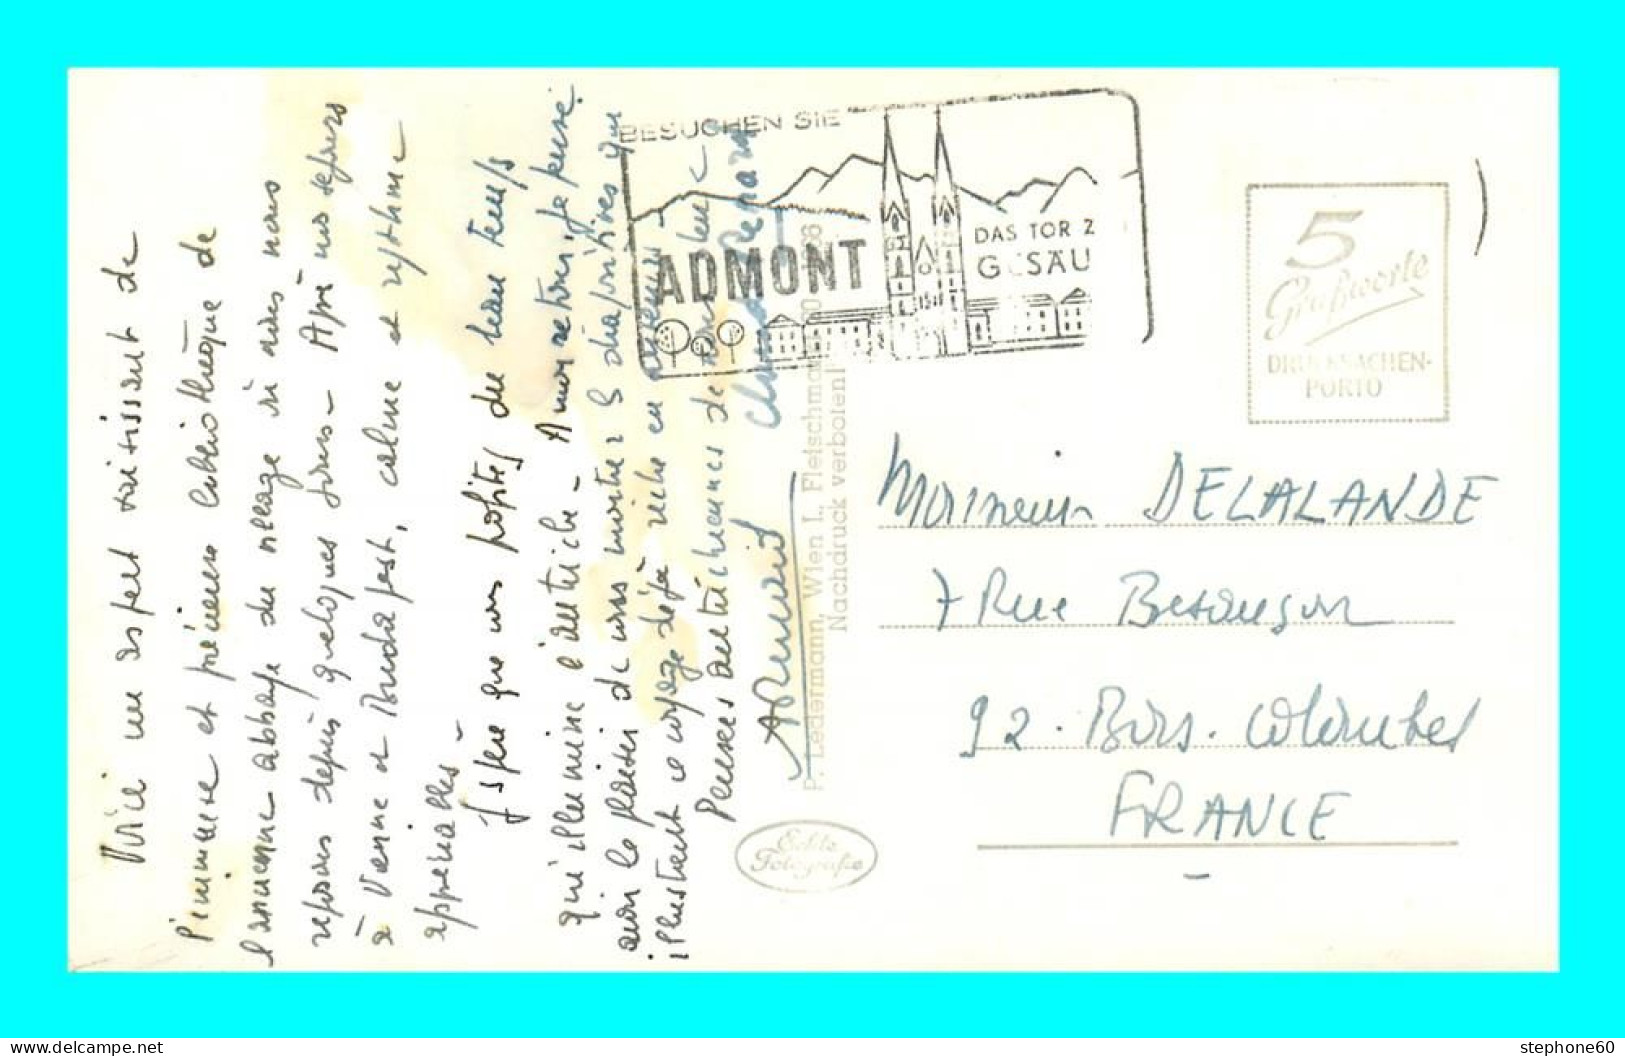 Voici un aspect saisissant de
l'immense et précieuse bibliothèque de
l'ancienne abbaye du village où nous nous
reposons depuis quelques jours - Après nos séjours
à Vienne et Budapest, calme et rythme
appréciables -
J'espère que vous profitez du beau temps
qui illumine l'autriche - A mon retour, je pense
avoir le plaisir de vous montrer 2 diapositives qui
illustrent ce voyage déjà riche en
Pensées autrichiennes de
Armand
BESUCHEN SIE
ADMONT
DAS TOR Z
GESÄU
5
Grußworte
DRUCKSACHEN-
PORTO
Monsieur DELALANDE
7 Rue Besançon
92 . Bois. Colombes
FRANCE
P. Ledermann, Wien I., Fleischmar
Nachdruck verboten!
Echte
Fotografie
stephone60